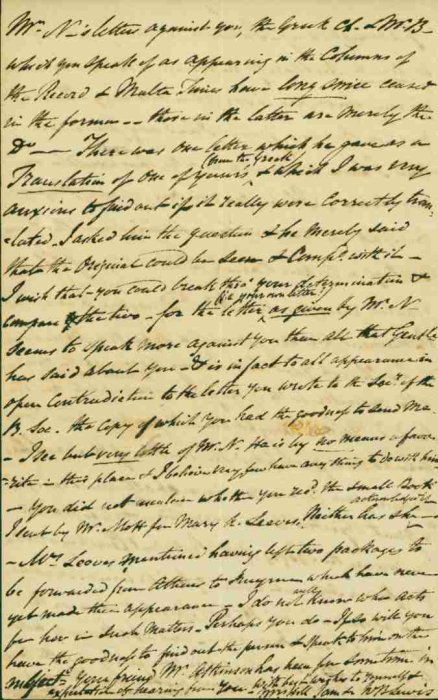 Mr. N's letters against you, the Greek Ch. & Mr. B-
which you speak of as appearing in the Columns of
the Record & Malta Times have long since ceased
in the former -- those in the latter are merely the
Do — There was one letter which he gave as a
Translation of one of yours (from the Greek) & which I was very
anxious to find out if it really were correctly trans
-lated. I asked him the question & he merely said
that the Original could be seen & Compd. with it -
I wish that you could break thro' your determination &
compare the two - for the letter (ie your own letter) as given by Mr. N
seems to speak more against you than all that Gentln
has said about you - & is in fact to all appearance in
open Contradiction to the letter you wrote to the Secy. of the
B. Soc. the Copy of which you had the goodness to send me
- I see but very little of Mr. N. He is by no means a favor-
-rite in this place & I believe very few have any thing to do with him
- You did not whether you recd. the small Book
I sent by Mr. for Mary A. Leeves. Neither has she acknowledged it
- Mrs. Leeves mentioned having left two packages to
be forwarded from Athens to which have never
yet made their appearance - I do not know who acts
for her in such matters - Perhaps you do - If so will you
have the goodness to find out the person & speak to him on the
subject - Your friend Mr. Atkinson has been here some time in
expectation of hearing from you - With best wishes to yourself &
I am